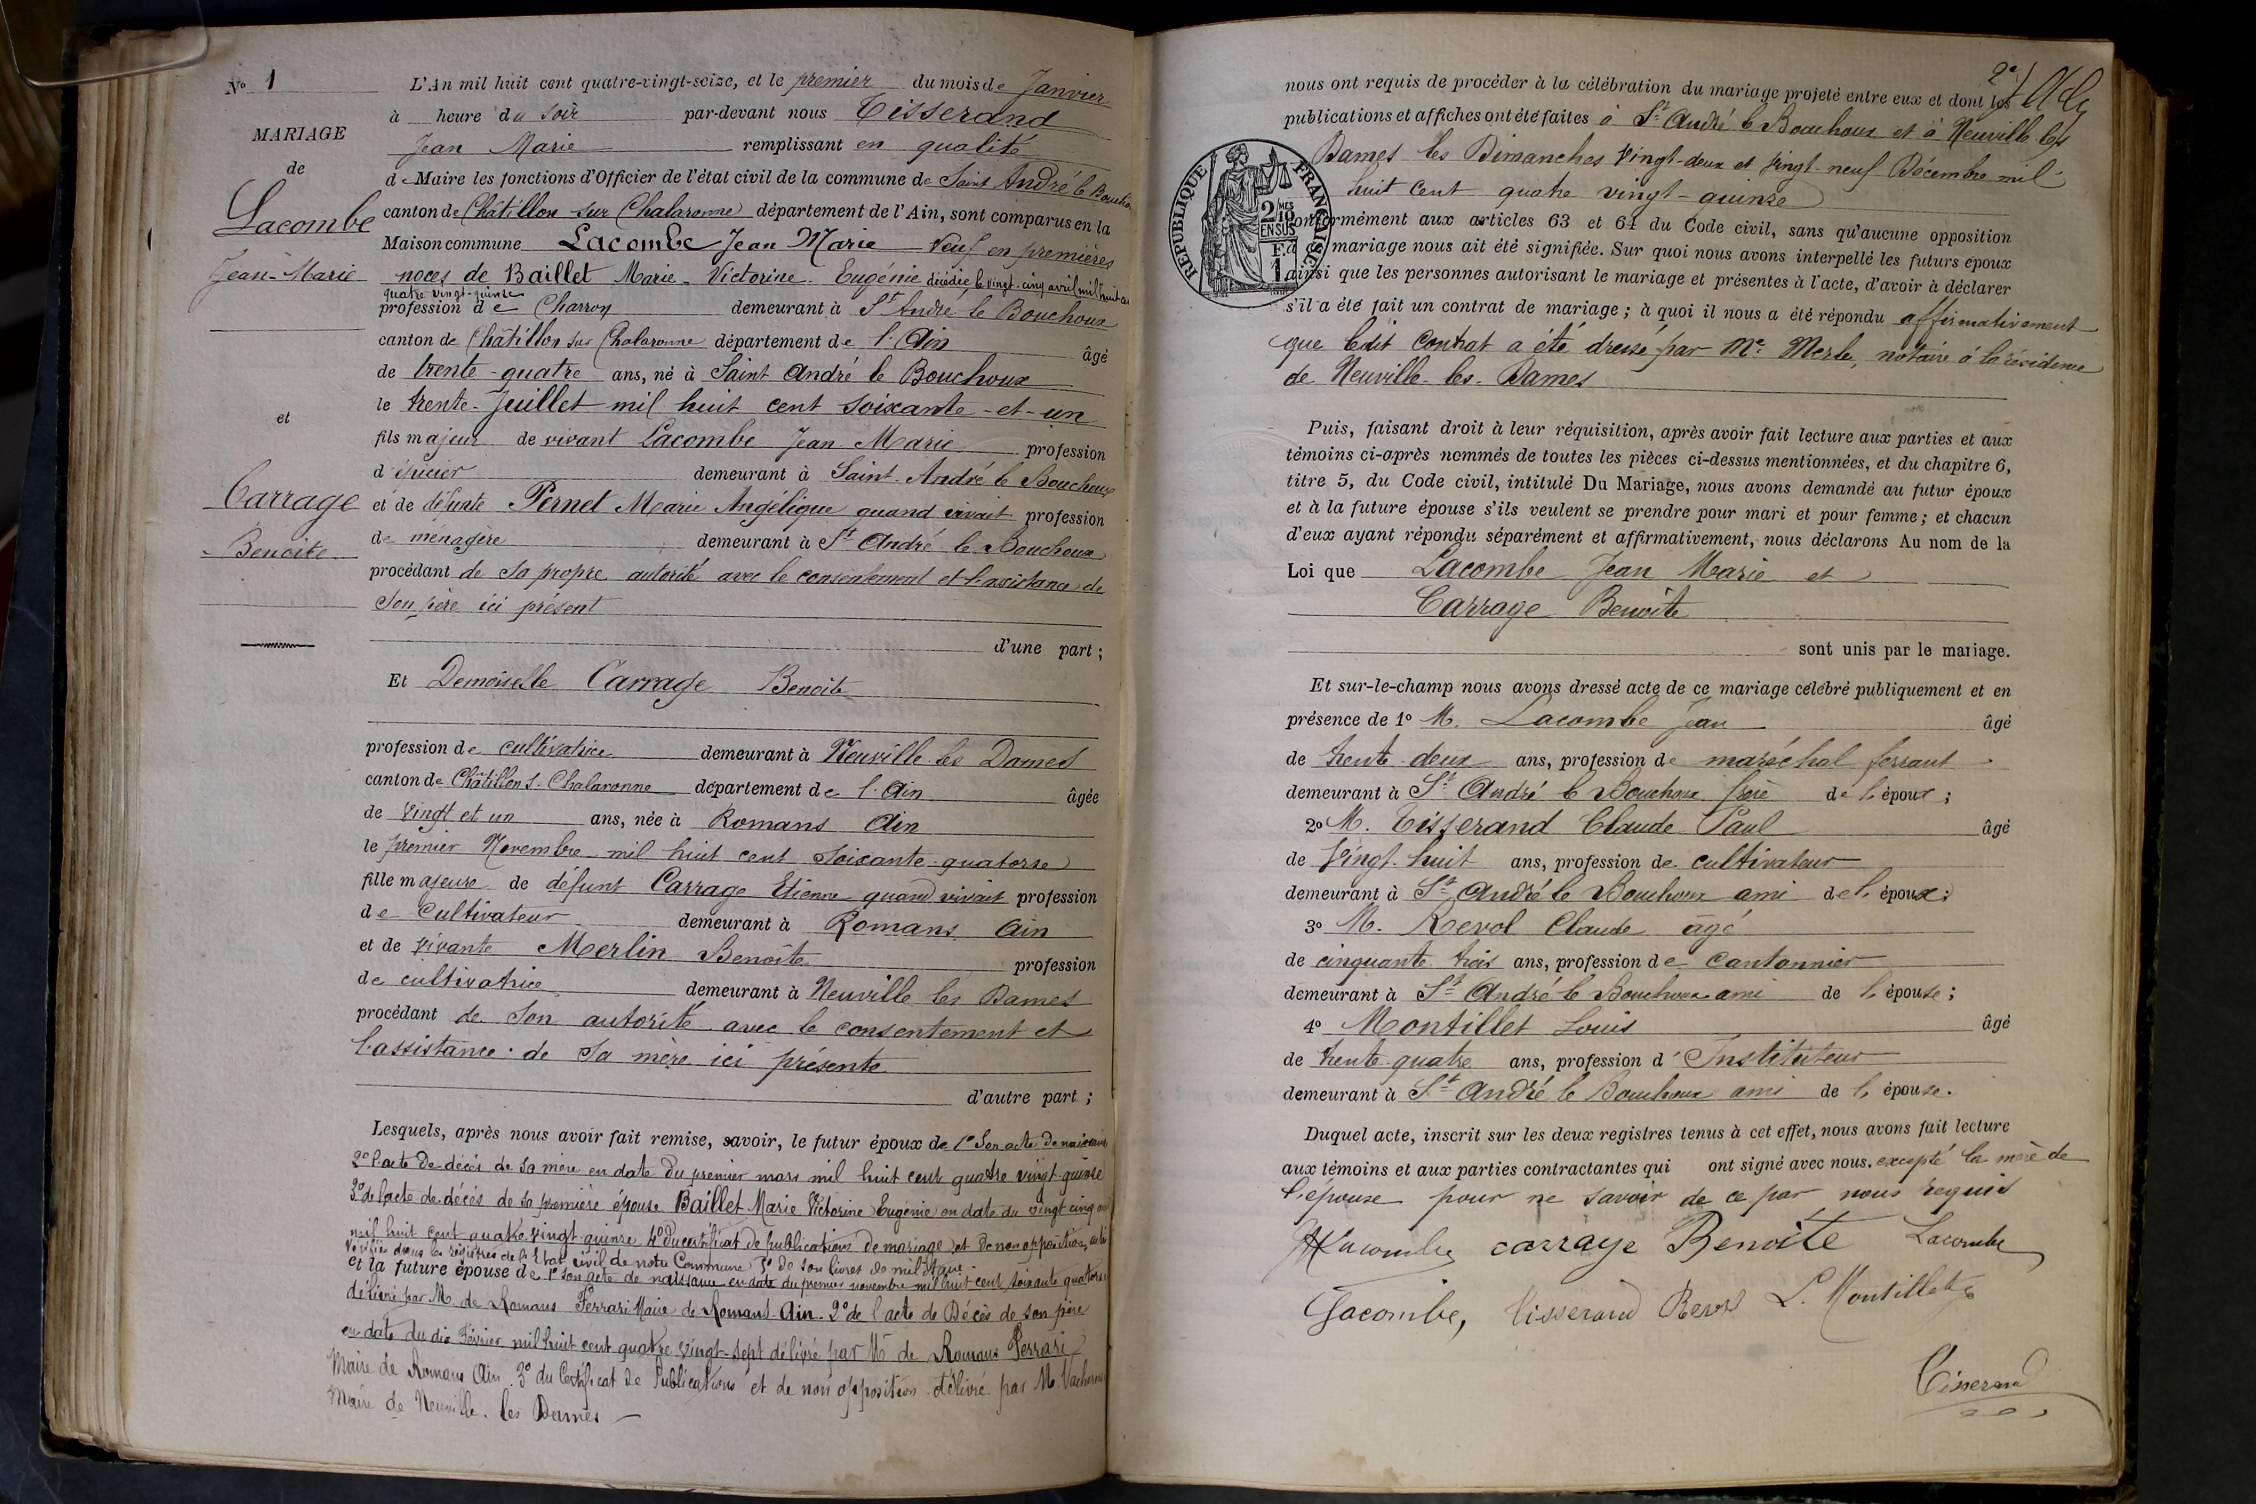 N° 1
MARIAGE
de
Lacombe
Jean-Marie
et
Carrage
Benoite
L'An mil huit cent quatre-vingt-seize, et le premier du mois de Janvier
à heure du soir par-devant nous Tisserand
Jean Marie remplissant en qualité
de Maire les fonctions d'Officier de l'état civil de la commune de Saint André le Bouchoux
canton de Châtillon sur Chalaronne département de l'Ain, sont comparus en la
Maison commune Lacombe Jean Marie Veuf en premières
noces de Baillet Marie Victorine Eugénie décédée le vingt-cinq avril mil huit cent
quatre vingt-quinze
profession de Charron demeurant à St André le Bouchoux
canton de Châtillon sur Chalaronne département de l'Ain âgé
de trente-quatre ans, né à Saint André le Bouchoux
le trente Juillet mil huit cent soixante-et-un
fils majeur de vivant Lacombe Jean Marie profession
d'épicier demeurant à Saint-André le Bouchoux
et de défunte Pernet Marie Angélique quand vivait profession
de ménagère demeurant à St André le Bouchoux
procédant de sa propre autorité avec le consentement et l'assistance de
son père ici présent
d'une part ;
Et Demoiselle Carrage Benoite
profession de cultivatrice demeurant à Neuville les Dames
canton de Châtillon s. Chalaronne département de l'Ain âgée
de vingt et un ans, née à Romans Ain
le premier Novembre mil huit cent soixante-quatorze
fille majeure de défunt Carrage Etienne quand vivait profession
de Cultivateur demeurant à Romans Ain
et de vivante Merlin Benoîte profession
de cultivatrice demeurant à Neuville les Dames
procédant de son autorité avec le consentement et
l'assistance de sa mère ici présente
d'autre part ;
Lesquels, après nous avoir fait remise, savoir, le futur époux de 1° Son acte de naissance
2° l'acte de décès de sa mère en date du premier mars mil huit cent quatre vingt-quinze
3° de l'acte de décès de sa première épouse Baillet Marie Victorine Eugénie en date du vingt cinq avril
mil huit cent quatre vingt-quinze 4° du certificat de publications de mariage et de non opposition,
vérifiés dans les registres de l'Etat civil de notre Commune 5° de son livret de militaire
et la future épouse de 1° son acte de naissance en date du premier novembre mil huit cent soixante quatorze
délivré par M. de Romans Ferrari Maire de Romans Ain. 2° de l'acte de Décès de son père
en date du dix Février mil huit cent quatre vingt-sept délivré par M. de Romans Ferrari
Maire de Romans Ain. 3° du Certificat de Publications et de non opposition délivré par M.
Maire de Neuville les Dames
2e
nous ont requis de procéder à la célébration du mariage projeté entre eux et dont les
publications et affiches ont été faites à St André le Bouchoux et à Neuville les
Dames les Dimanches vingt-deux et vingt-neuf Décembre mil
huit cent quatre vingt-quinze
RÉPUBLIQUE FRANÇAISE
2 MES 10 EN SUS
1 F.
conformément aux articles 63 et 64 du Code civil, sans qu'aucune opposition
mariage nous ait été signifiée. Sur quoi nous avons interpellé les futurs époux
ainsi que les personnes autorisant le mariage et présentes à l'acte, d'avoir à déclarer
s'il a été fait un contrat de mariage ; à quoi il nous a été répondu affirmativement
que ledit contrat a été dressé par Me Merle, notaire à la résidence
de Neuville-les-Dames
Puis, faisant droit à leur réquisition, après avoir fait lecture aux parties et aux
témoins ci-après nommés de toutes les pièces ci-dessus mentionnées, et du chapitre 6,
titre 5, du Code civil, intitulé Du Mariage, nous avons demandé au futur époux
et à la future épouse s'ils veulent se prendre pour mari et pour femme ; et chacun
d'eux ayant répondu séparément et affirmativement, nous déclarons Au nom de la
Loi que Lacombe Jean Marie et
Carrage Benoite
sont unis par le mariage.
Et sur-le-champ nous avons dressé acte de ce mariage célébré publiquement et en
présence de 1° M. Lacombe Jean âgé
de trente-deux ans, profession de maréchal ferrant
demeurant à St André le Bouchoux frère de l'époux ;
2° M. Tisserand Claude Paul âgé
de vingt-huit ans, profession de cultivateur
demeurant à St André le Bouchoux ami de l'époux ;
3° M. Revol Claude âgé
de cinquante trois ans, profession de Cantonnier
demeurant à St André le Bouchoux ami de l'épouse ;
4° Montillet Louis âgé
de trente-quatre ans, profession d'Instituteur
demeurant à St André le Bouchoux ami de l'épouse.
Duquel acte, inscrit sur les deux registres tenus à cet effet, nous avons fait lecture
aux témoins et aux parties contractantes qui ont signé avec nous. excepté la mère de
l'épouse pour ne savoir de ce par nous requis
Lacombe carrage Benoite Lacombe
Lacombe, Tisserand Revol L. Montillet
Tisserand